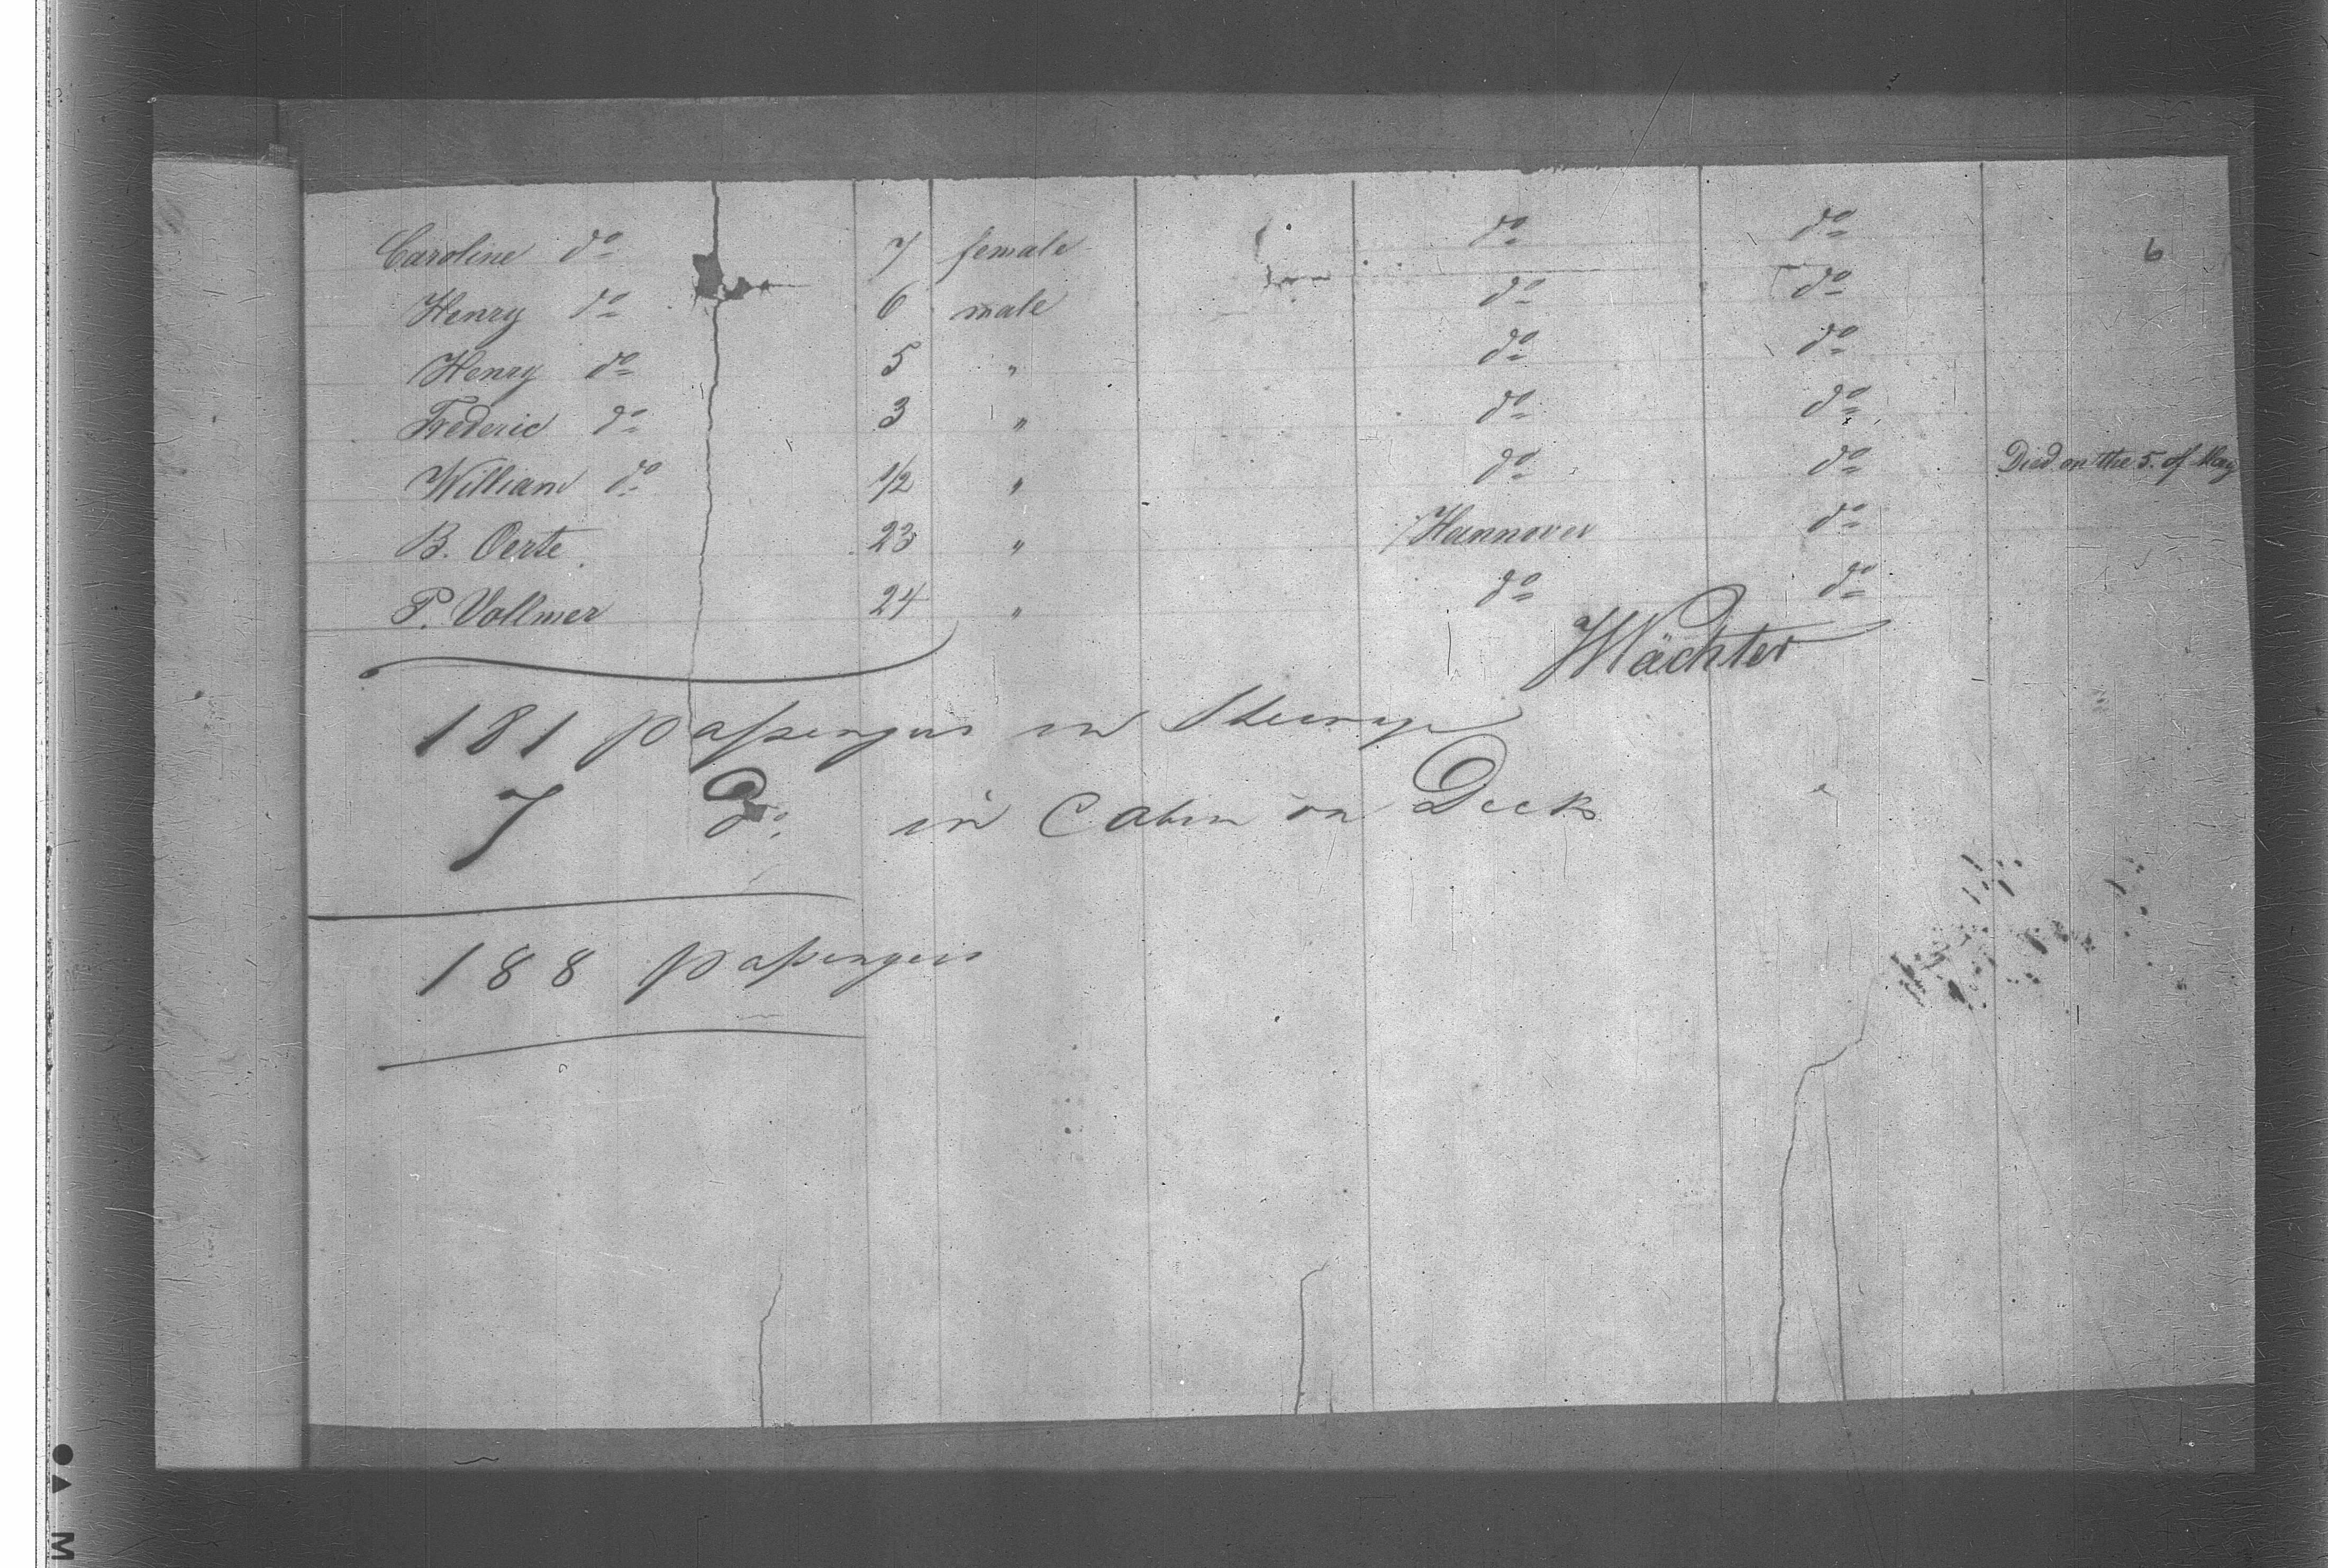 6
Caroline do 7 female do do
Henry do 6 male do do
Henry do 5 " do do
Frederic do 3 " do do
William do 1/2 " do do Died on the 5. of May
B. Oerte. 23 " Hannover do
P. Vollmer 24 " do do
Wächter
181 passengers in Steerage
7 do. in Cabin on Deck
188 passengers
M